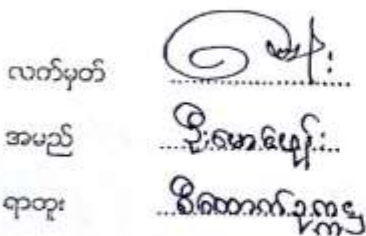 လက်မှတ်
အမည် ဦးမောင်မျိုး
ရာထူး စီထောက်ဥက္ကဋ္ဌ